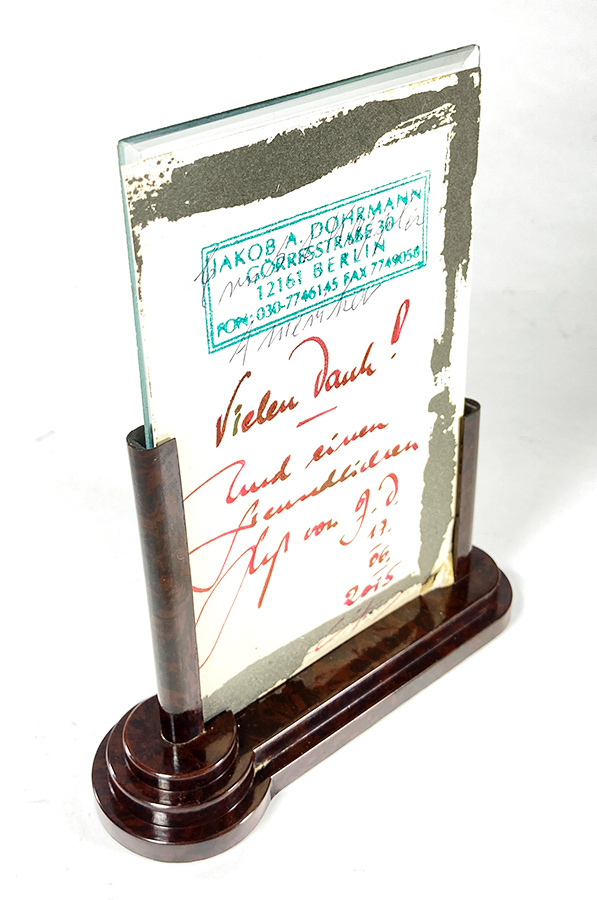 JAKOB A. DOHRMANN
GÖRRESSTRAßE 30
12161 BERLIN
FON: 030-7746145 FAX 7749056
Vielen Dank!
Und einen
freundlichen
von J. D.
17.
06.
2015